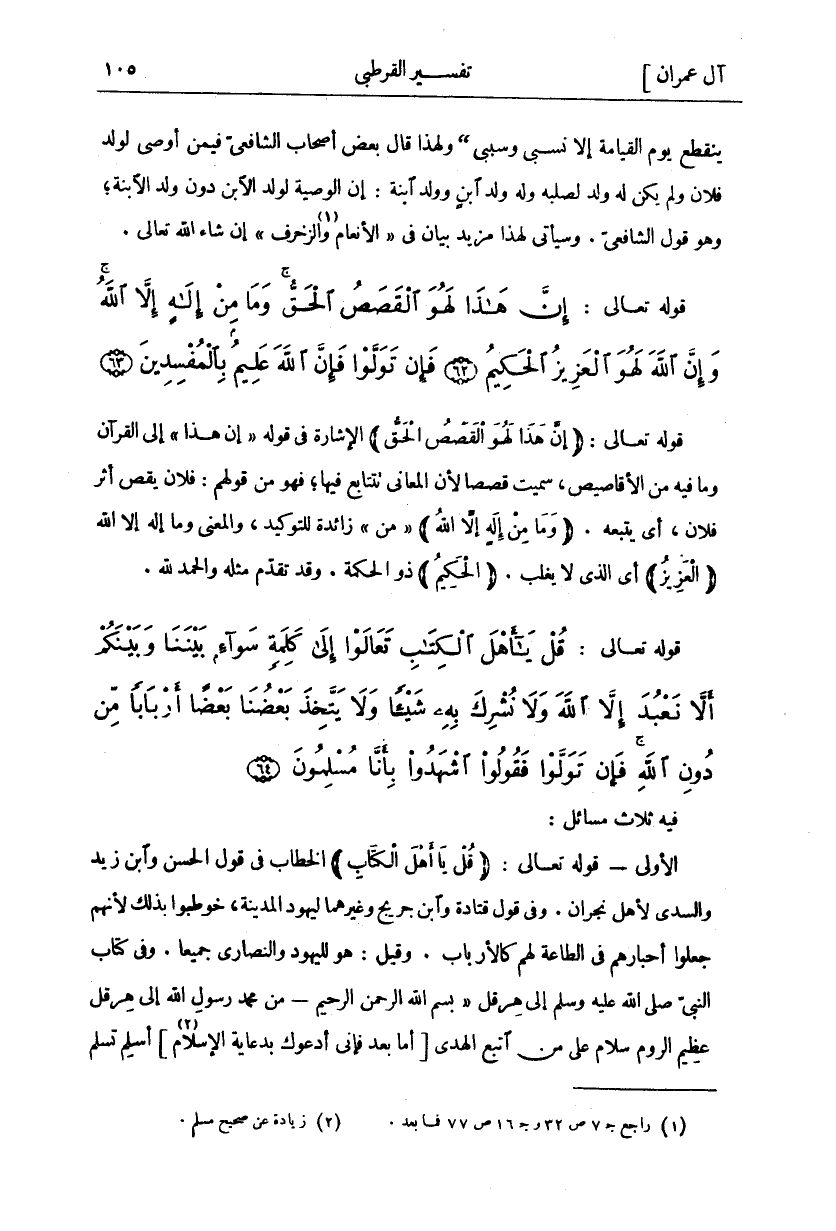 آل عمران ] تفسير القرطبى ١٠٥
ينقطع يوم القيامة إلا نسبى وسببى" ولهذا قال بعض أصحاب الشافعىّ فيمن أوصى لولد
فلان ولم يكن له ولد لصلبه وله ولد ٱبنٍ وولد ٱبنة : إن الوصية لولد الآبن دون ولد الآبنة؛
وهو قول الشافعىّ . وسيأتى لهذا مزيد بيان فى « الأنعام والزخرف(١) » إن شاء الله تعالى .
قوله تعالى : إِنَّ هَـٰذَا لَهُوَ ٱلْقَصَصُ ٱلْحَقُّ ۚ وَمَا مِنْ إِلَـٰهٍ إِلَّا ٱللَّهُ ۚ
وَإِنَّ ٱللَّهَ لَهُوَ ٱلْعَزِيزُ ٱلْحَكِيمُ ٦٢ فَإِن تَوَلَّوْا فَإِنَّ ٱللَّهَ عَلِيمٌ بِٱلْمُفْسِدِينَ ٦٣
قوله تعالى : ﴿ إِنَّ هَذَا لَهُوَ الْقَصَصُ الْحَقُّ ﴾ الإشارة فى قوله « إن هذا » إلى القرآن
وما فيه من الأقاصيص، سميت قصصا لأن المعانى تتتابع فيها؛ فهو من قولهم : فلان يقص أثر
فلان ، أى يتبعه . ﴿ وَمَا مِنْ إِلَهٍ إِلَّا اللهُ ﴾ « من » زائدة للتوكيد ، والمعنى وما إله إلا الله
﴿ الْعَزِيزُ ﴾ أى الذى لا يغلب . ﴿ الْحَكِيمُ ﴾ ذو الحكمة . وقد تقدّم مثله والحمد لله .
قوله تعالى : قُلْ يَـٰٓأَهْلَ ٱلْكِتَـٰبِ تَعَالَوْا إِلَىٰ كَلِمَةٍ سَوَآءٍ بَيْنَنَا وَبَيْنَكُمْ
أَلَّا نَعْبُدَ إِلَّا ٱللَّهَ وَلَا نُشْرِكَ بِهِۦ شَيْـًٔا وَلَا يَتَّخِذَ بَعْضُنَا بَعْضًا أَرْبَابًا مِّن
دُونِ ٱللَّهِ ۚ فَإِن تَوَلَّوْا فَقُولُوا۟ ٱشْهَدُوا۟ بِأَنَّا مُسْلِمُونَ ٦٤
فيه ثلاث مسائل :
الأولى — قوله تعالى : ﴿ قُلْ يَا أَهْلَ الْكِتَابِ ﴾ الخطاب فى قول الحسن وٱبن زيد
والسدى لأهل نجران . وفى قول قتادة وٱبن جريج وغيرهما ليهود المدينة، خوطبوا بذلك لأنهم
جعلوا أحبارهم فى الطاعة لهم كالأرباب . وقيل : هو لليهود والنصارى جميعا . وفى كتاب
النبىّ صلى الله عليه وسلم إلى هِرقل « بسم الله الرحمن الرحيم — من محمد رسولِ الله إلى هِرقل
عظِيم الروم سلام على من ٱتبع الهدى [ أما بعد فإنى أدعوك بدعاية الإسلام(٢) ] أسلِم تسلم
(١) راجع جـ ٧ ص ٣٢ وجـ ١٦ ص ٧٧ فما بعد . (٢) زيادة عن صحيح مسلم .